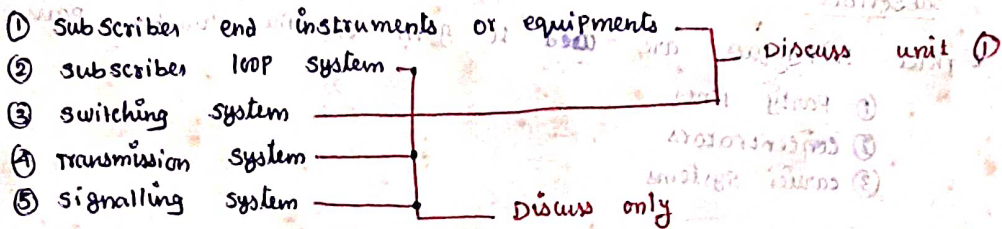 ① Subscribes end instruments or equipments
Discuss unit ①
② subscribes loop system
③ switching system
④ Transmission system
⑤ signalling system
Discuss only